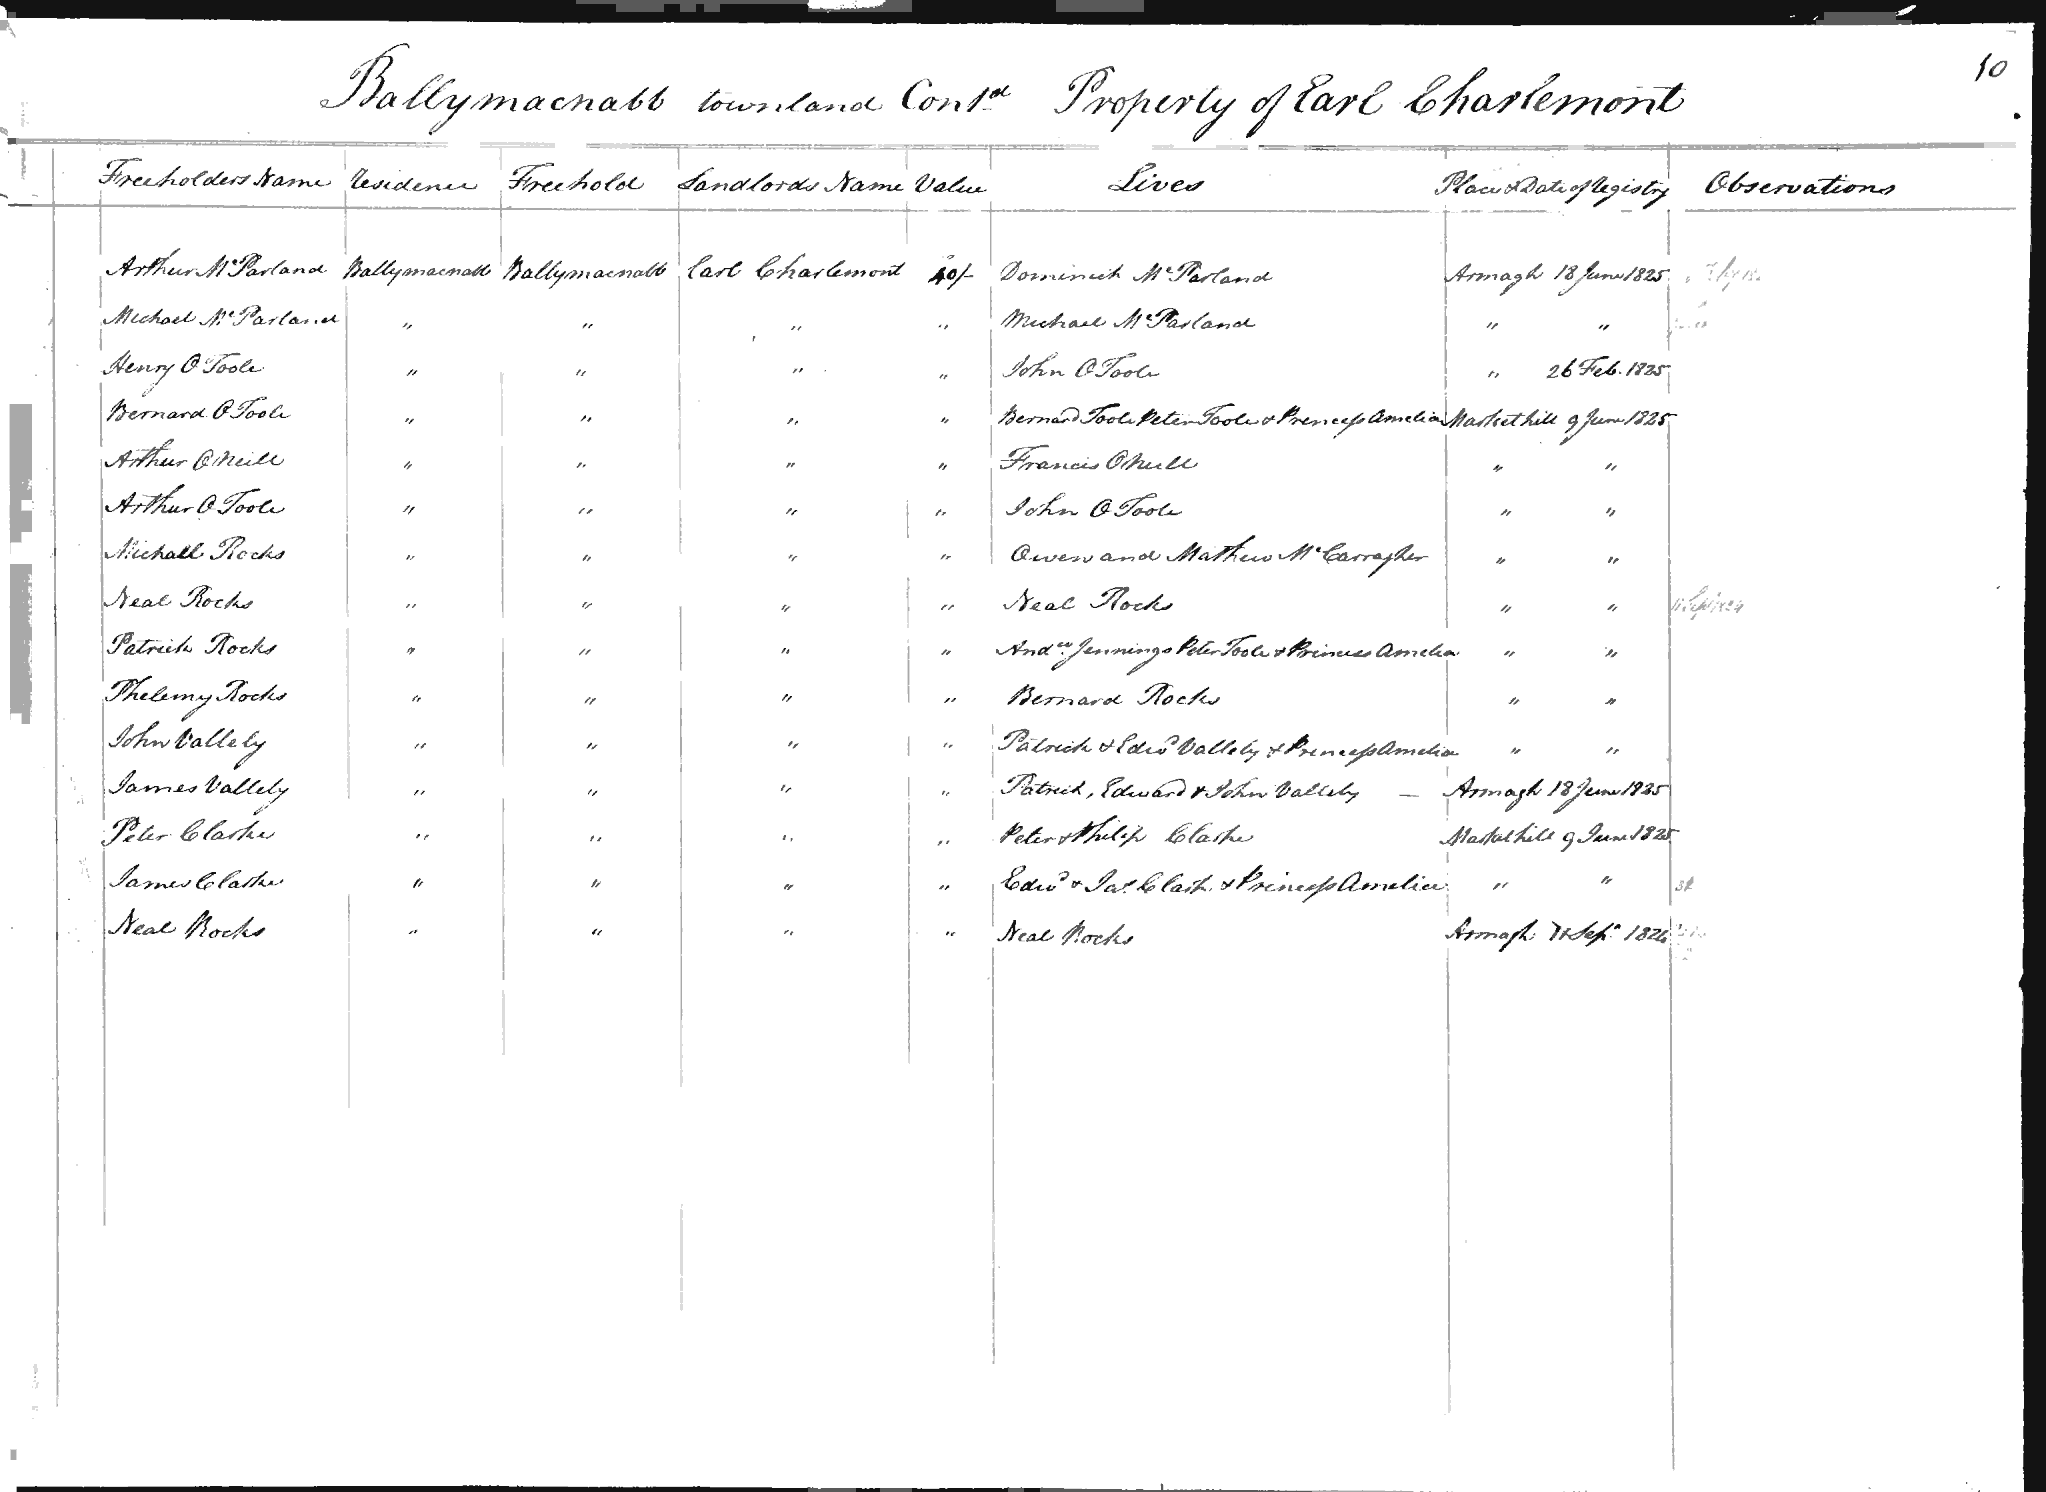 10
Ballymacnabb townland Contd Property of Earl Charlemont
Freeholders Name Residence Freehold Landlords Name Value Lives Place & Date of Registry Observations
Arthur McParland Ballymacnabb Ballymacnabb Earl Charlemont 40/- Dominick McParland Armagh 18 June 1825
Michael McParland " " " " Michael McParland " "
Henry O Toole " " " " John O Toole " 26 Feb. 1825
Bernard O Toole " " " " Bernard Toole Peter Toole & Princess Amelia Markethill 9 June 1825
Arthur O Neill " " " " Francis O Neill " "
Arthur O Toole " " " " John O Toole " "
Michall Rocks " " " " Owen and Mathew McCarragher " "
Neal Rocks " " " " Neal Rocks " "
Patrick Rocks " " " " Andw Jennings Peter Toole & Princess Amelia " "
Phelemy Rocks " " " " Bernard Rocks " "
John Vallely " " " " Patrick & Edwd Vallely & Princess Amelia " "
James Vallely " " " " Patrick, Edward & John Vallely — Armagh 18 June 1825
Peter Clarke " " " " Peter & Philip Clarke Markethill 9 June 1825
James Clarke " " " " Edwd & Jas Clark & Princess Amelia " "
Neal Rocks " " " " Neal Rocks Armagh Sepr 1826